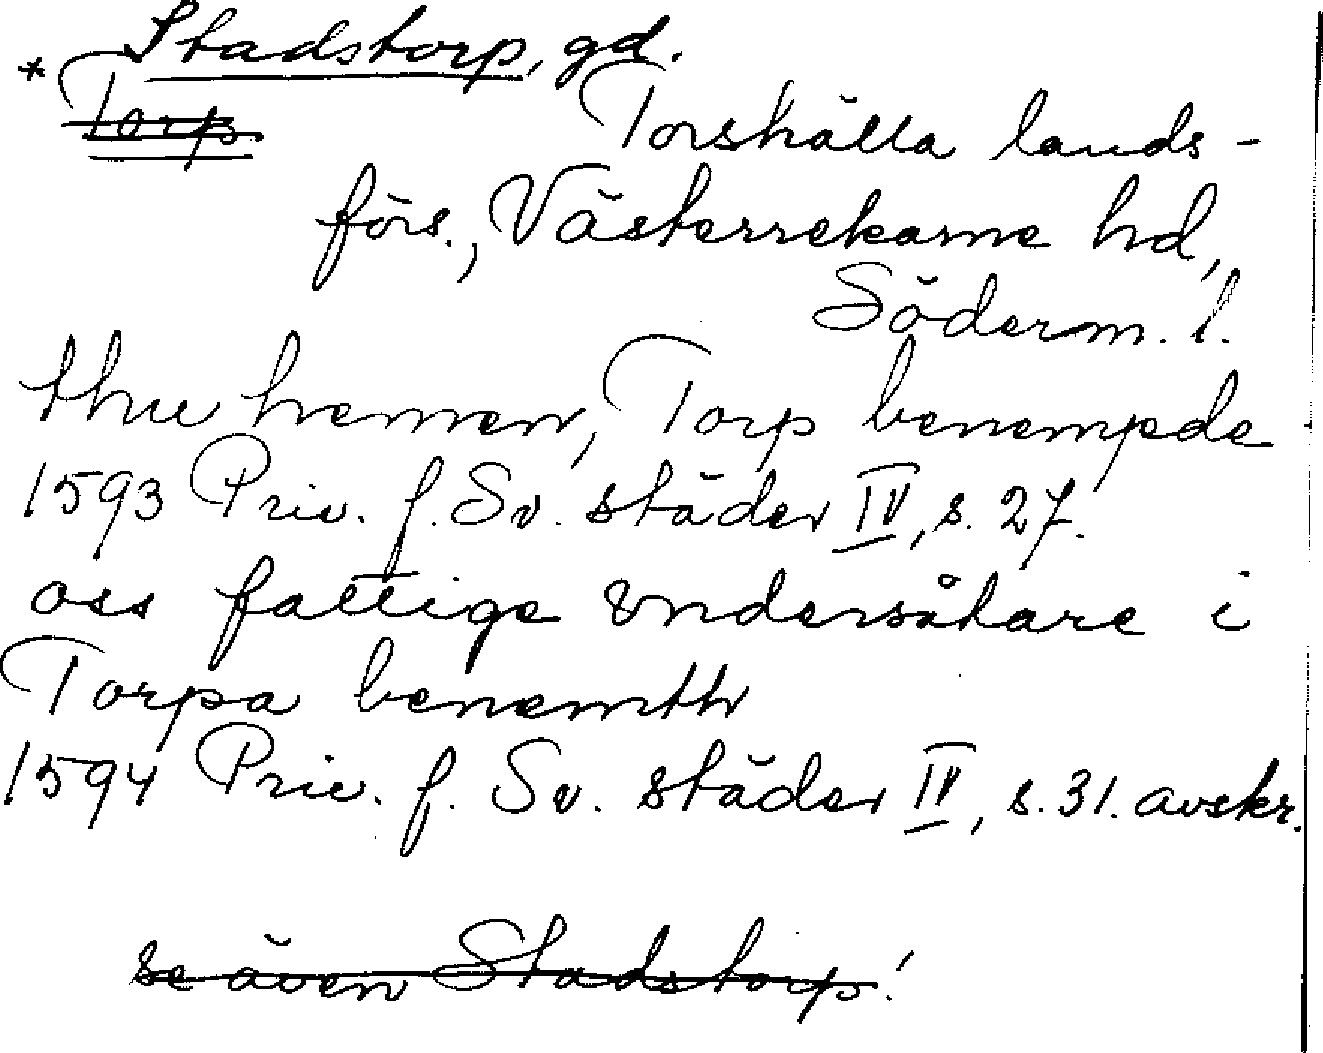 Stadstorp, gd.
* Torp Torshälla lands-
förs., Västerrekarne hd,
Söderm. l.
thu hemen, Torp benempde
1593 Priv. f. Sv. städer IV, s. 27.
oss fattige vndersåtare i
Torpa benemth
1594 Priv. f. Sv. städer IV, s. 31. avskr.
se även Stadstorp!